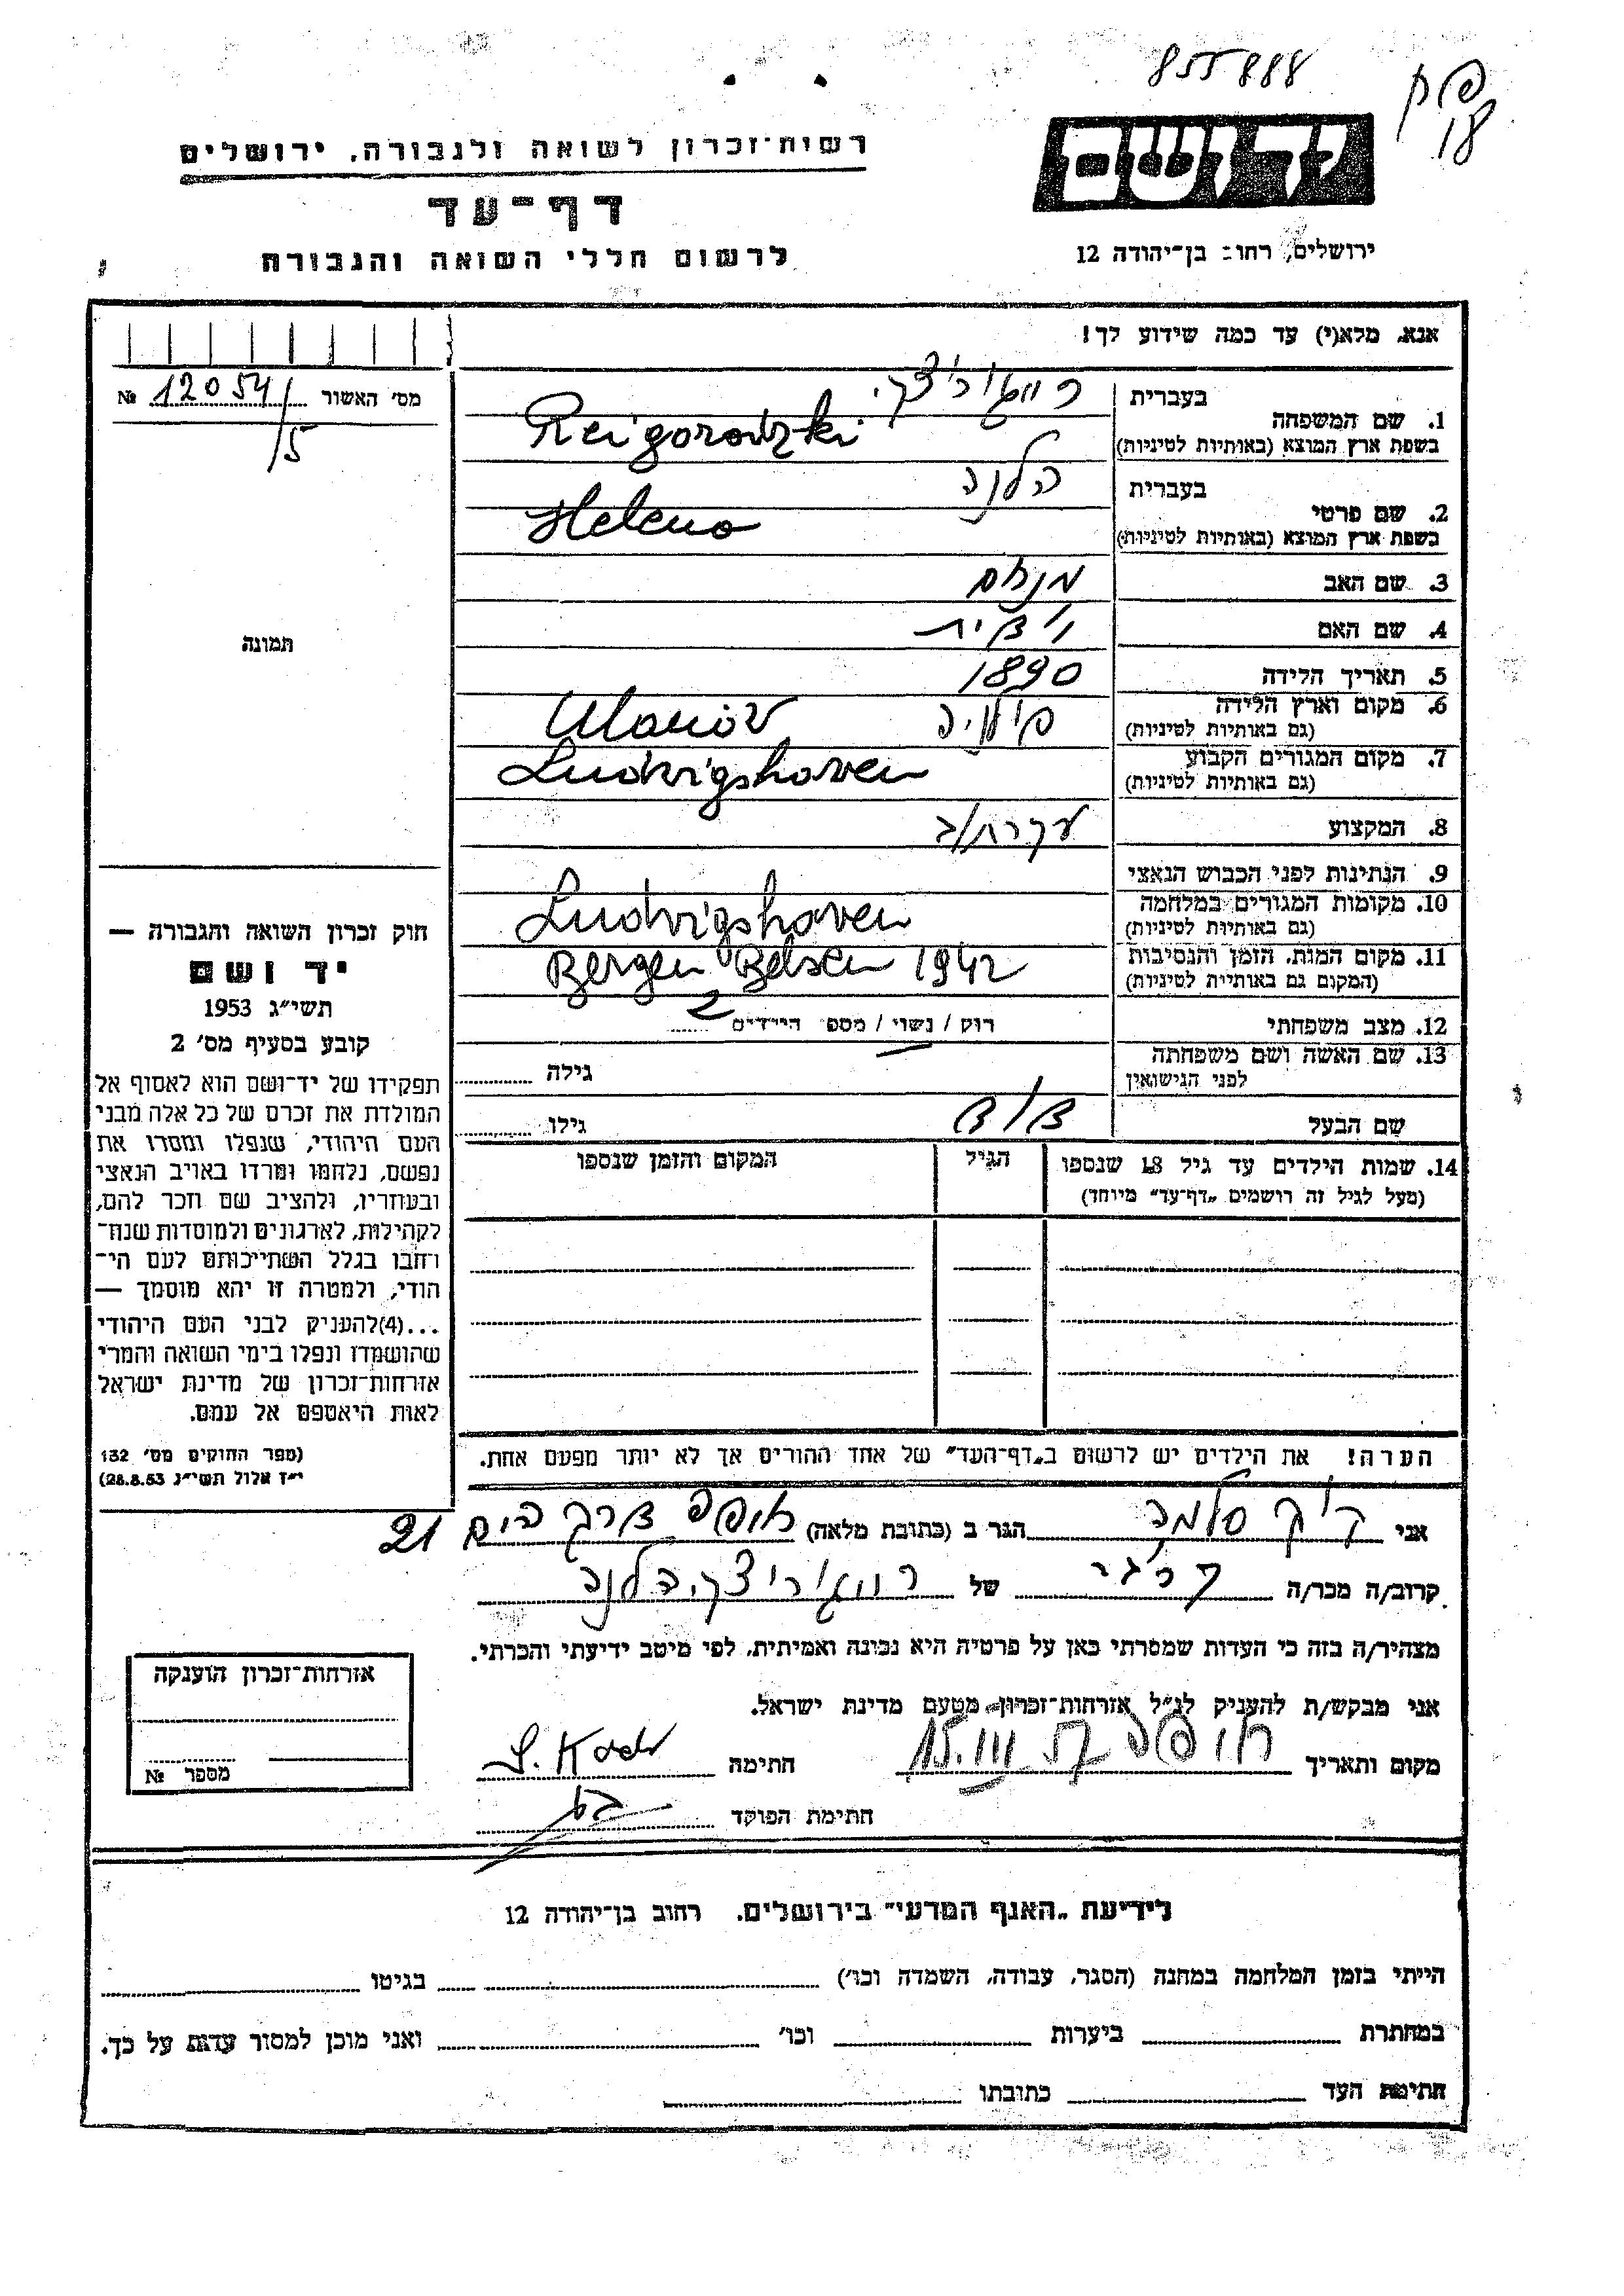 855888
רשות-זכרון לשואה ולגבורה, ירושלים
יד ושם
דף-עד
לרשום חללי השואה והגבורה
ירושלים, רחוב בן-יהודה 12
אנא, מלא(י) עד כמה שידוע לך!
מס' האשור № 12054/5
1. שם המשפחה
בעברית
בשפת ארץ המוצא (באותיות לטיניות) Reigorodzki
2. שם פרטי
בעברית הלנה
בשפת ארץ המוצא (באותיות לטיניות) Helena
3. שם האב מנחם
4. שם האם יודית
5. תאריך הלידה 1890
6. מקום וארץ הלידה
(גם באותיות לטיניות) Ulanów פולניה
7. מקום המגורים הקבוע
(גם באותיות לטיניות) Ludwigshaven
8. המקצוע עקרת/ב
9. הנתינות לפני הכבוש הנאצי
10. מקומות המגורים במלחמה
(גם באותיות לטיניות) Ludwigshaven
11. מקום המות, הזמן והנסיבות
(המקום גם באותיות לטיניות) Bergen Belsen 1942
12. מצב משפחתי רוק / נשוי / מספר הילדים 2
13. שם האשה ושם משפחתה
לפני הנישואין גילה
שם הבעל דוד גילו
14. שמות הילדים עד גיל 18 שנספו
(מעל לגיל זה רושמים "דף-עד" מיוחד)
הגיל
המקום והזמן שנספו
הערה! את הילדים יש לרשום ב"דף-העד" של אחד ההורים אך לא יותר מפעם אחת.
תמונה
חוק זכרון השואה והגבורה —
יד ושם
תשי"ג 1953
קובע בסעיף מס' 2
תפקידו של יד-ושם הוא לאסוף אל
המולדת את זכרם של כל אלה מבני
העם היהודי, שנפלו ומסרו את
נפשם, נלחמו ומרדו באויב הנאצי
ובעוזריו, ולהציב שם וזכר להם,
לקהילות, לארגונים ולמוסדות שנח-
רחבו בגלל השתייכותם לעם הי-
הודי, ולמטרה זו יהא מוסמך —
...(4)להעניק לבני העם היהודי
שהושמדו ונפלו בימי השואה והמרי
אזרחות-זכרון של מדינת ישראל
לאות היאספם אל עמם.
(ספר החוקים מס' 132
י"ז אלול תשי"ג 28.8.53)
אני קוך סלמה הגר ב (כתובת מלאה) חיפה דרך הים 21
קרוב/ה מכר/ה של הלנה
מצהיר/ה בזה כי העדות שמסרתי כאן על פרטיה היא נכונה ואמיתית, לפי מיטב ידיעתי והכרתי.
אני מבקש/ת להעניק לנ"ל אזרחות-זכרון מטעם מדינת ישראל.
מקום ותאריך חיפה חתימה
חתימת הפוקד
אזרחות-זכרון הוענקה
מספר №
לידיעת "האגף המדעי" בירושלים, רחוב בן-יהודה 12
הייתי בזמן המלחמה במחנה (הסגר, עבודה, השמדה וכו') בגיטו
במחתרת ביערות וכו' ואני מוכן למסור עדות על כך.
חתימת העד כתובתו